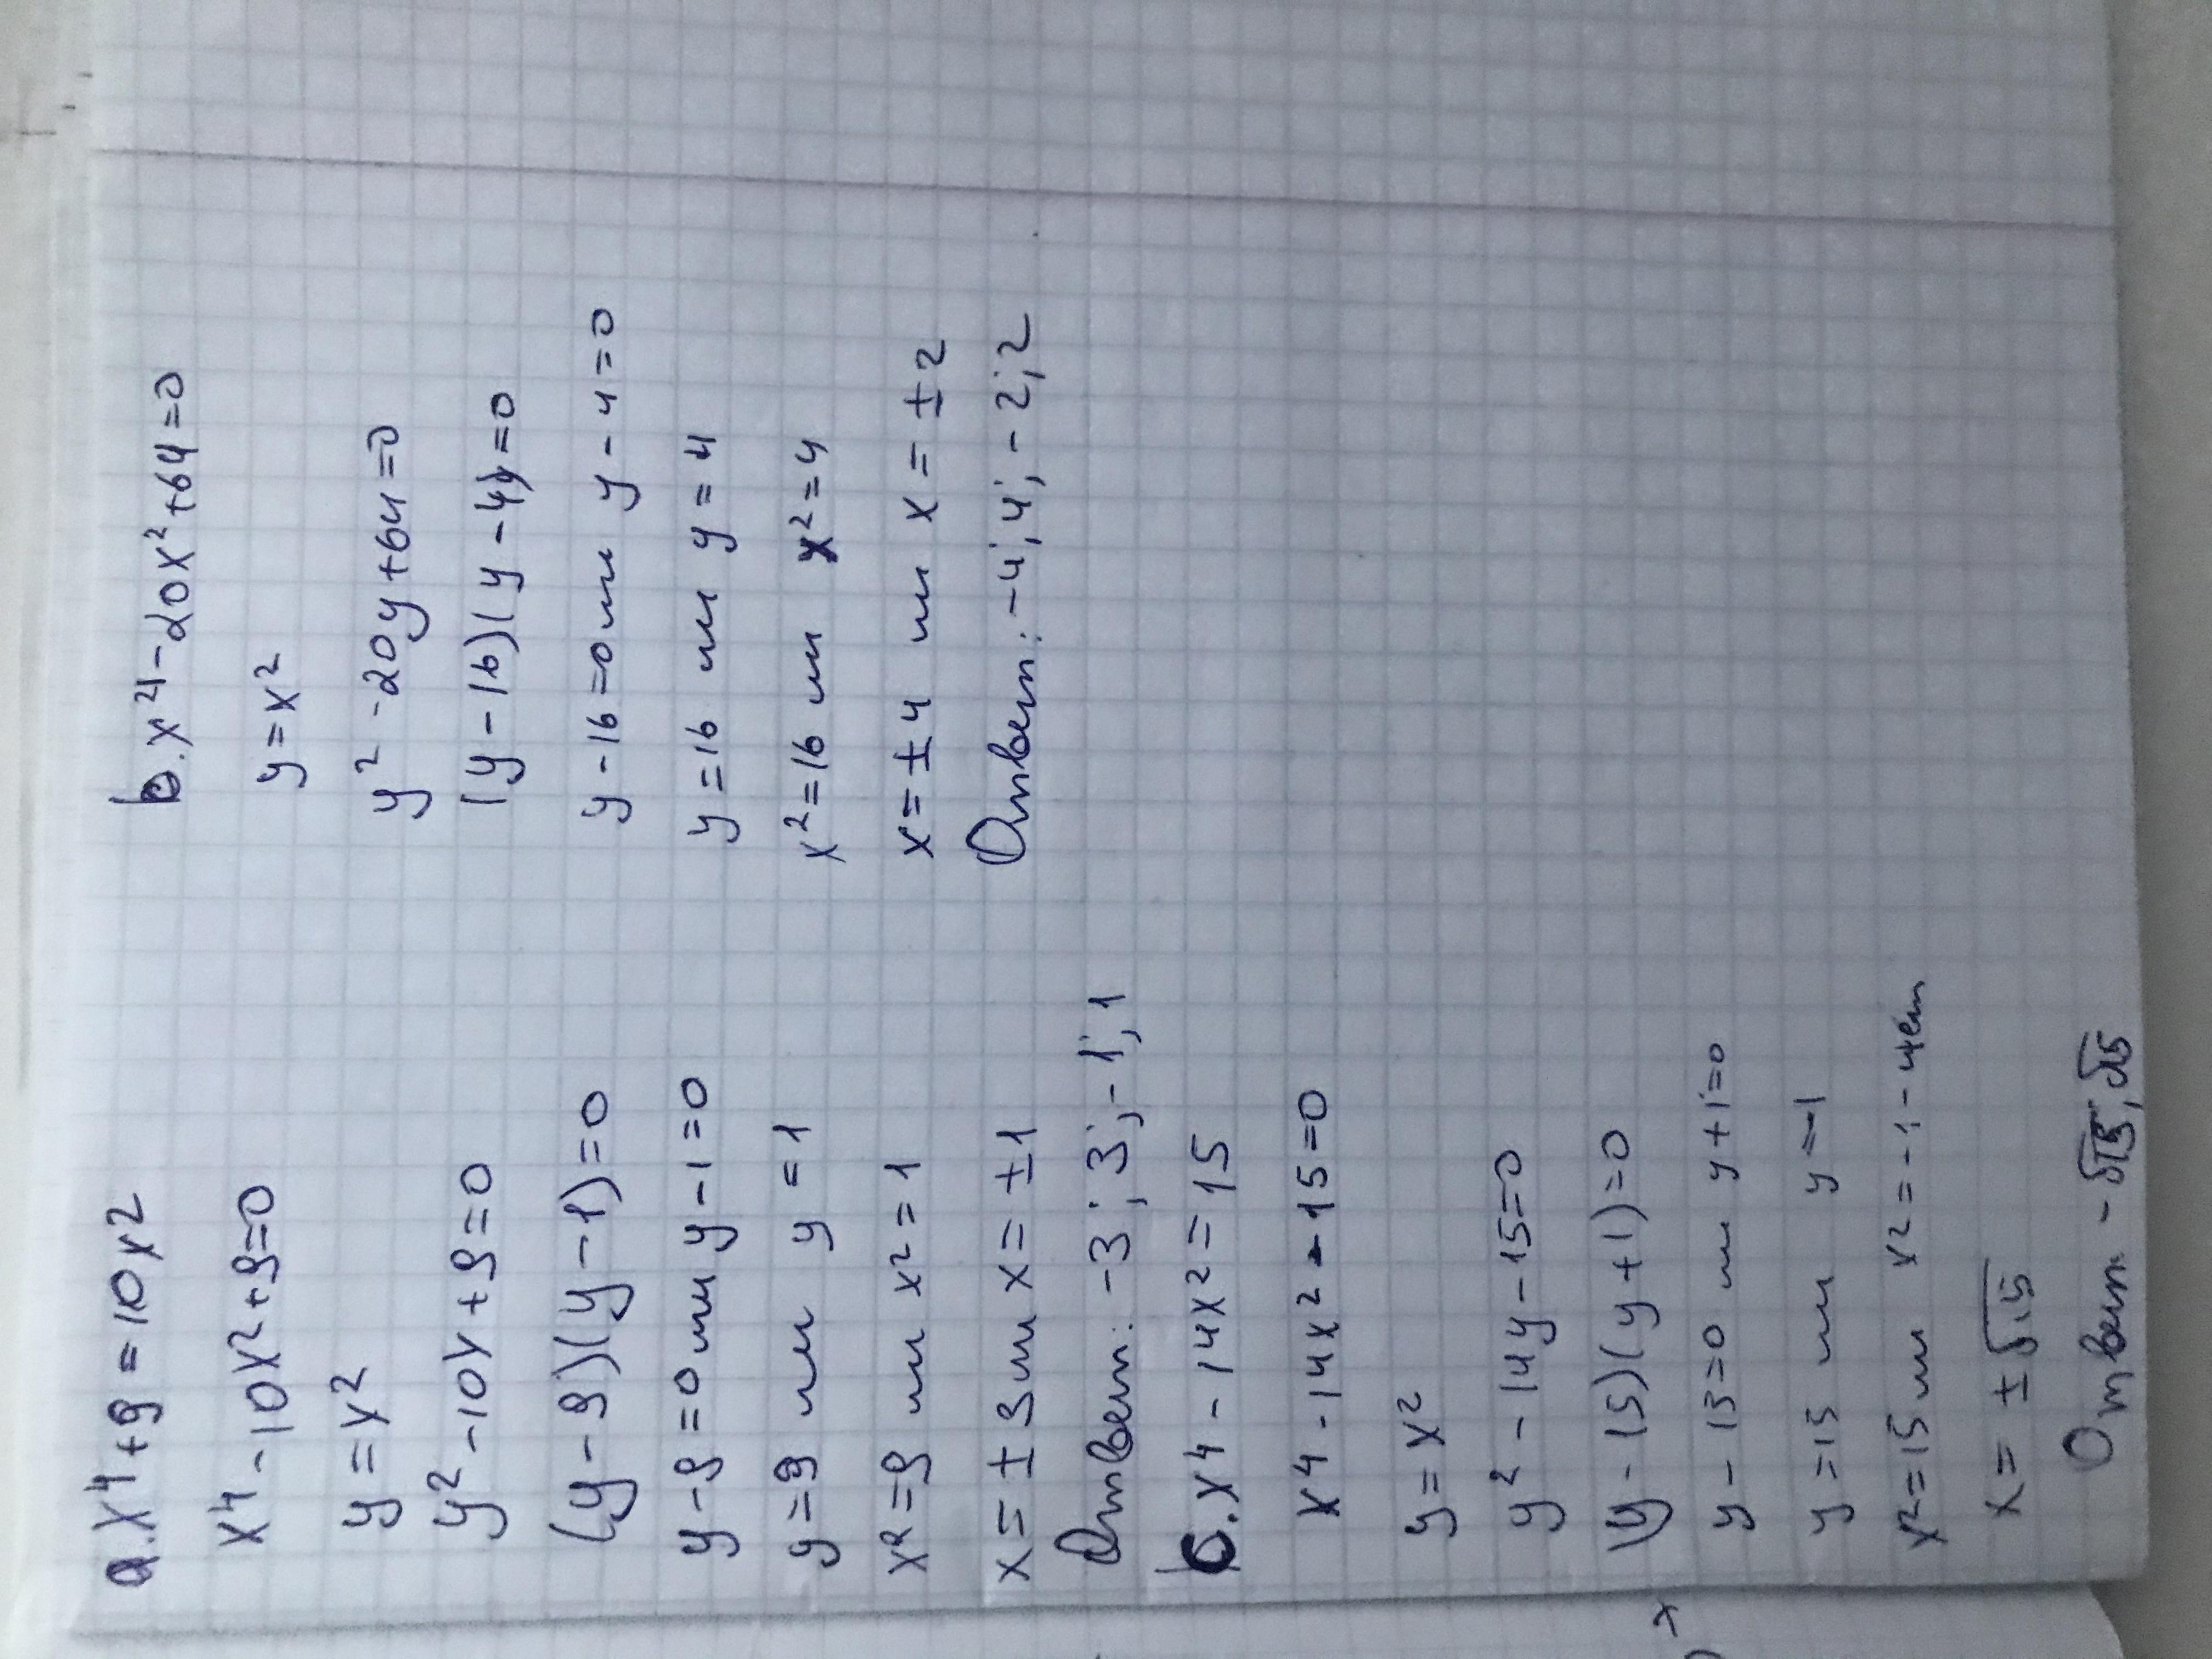 a. x⁴+9=10x2
x⁴-10x²+9=0
y=x²
y²-10y+9=0
(y-9)(y-1)=0
y-9=0 или y-1=0
y=9 или y=1
x²=9 или x²=1
x=±3 или x=±1
Ответ: -3; 3; -1; 1
c. x⁴-14x²=15
x⁴-14x²-15=0
y=x²
y²-14y-15=0
(y-15)(y+1)=0
y-15=0 или y+1=0
y=15 или y=-1
x²=15 или x²=-1-нет
x=±√15
Ответ: -√15; √15
b. x⁴-20x²+64=0
y=x²
y²-20y+64=0
(y-16)(y-4)=0
y-16=0 или y-4=0
y=16 или y=4
x²=16 или x²=4
x=±4 или x=±2
Ответ: -4; 4; -2; 2